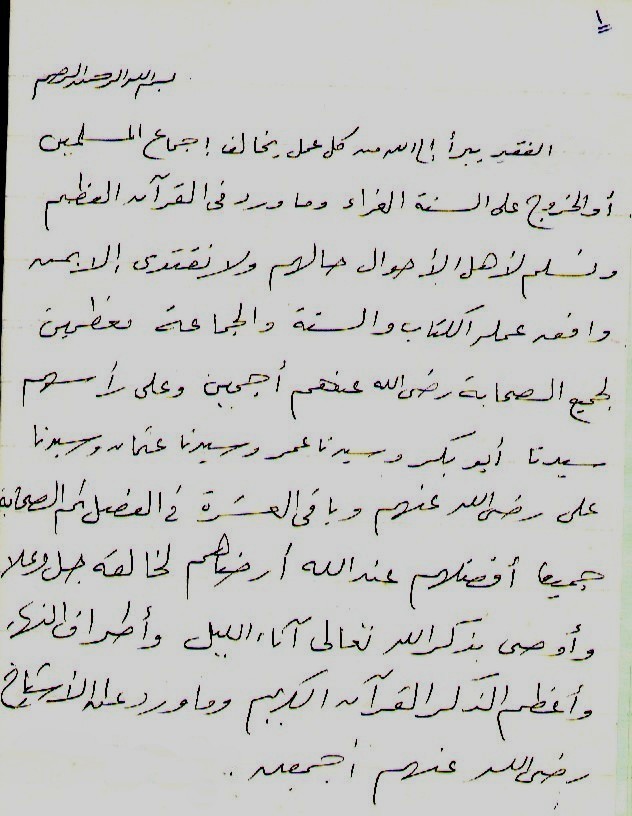 ١
بسم الله الرحمن الرحيم
الفقير يبرأ إلى الله من كل عمل يخالف إجماع المسلمين
أو الخروج على السنة الغراء وما ورد فى القرآن العظيم
ونسلم لأهل الأحوال حالهم ولا نقتدى إلا بمن
وافق عمله الكتاب والسنة والجماعة معظمين
لجميع الصحابة رضى الله عنهم أجمعين وعلى رأسهم
سيدنا أبو بكر وسيدنا عمر وسيدنا عثمان وسيدنا
على رضى الله عنهم وباقى العشرة فى الفضل ثم الصحابة
جميعا أفضلهم عند الله أرضاهم لخالقه جل وعلا
وأوصى بذكر الله تعالى آناء الليل وأطراف النهار
وأعظم الذكر القرآن الكريم وما ورد عن الأشياخ
رضى الله عنهم أجمعين .